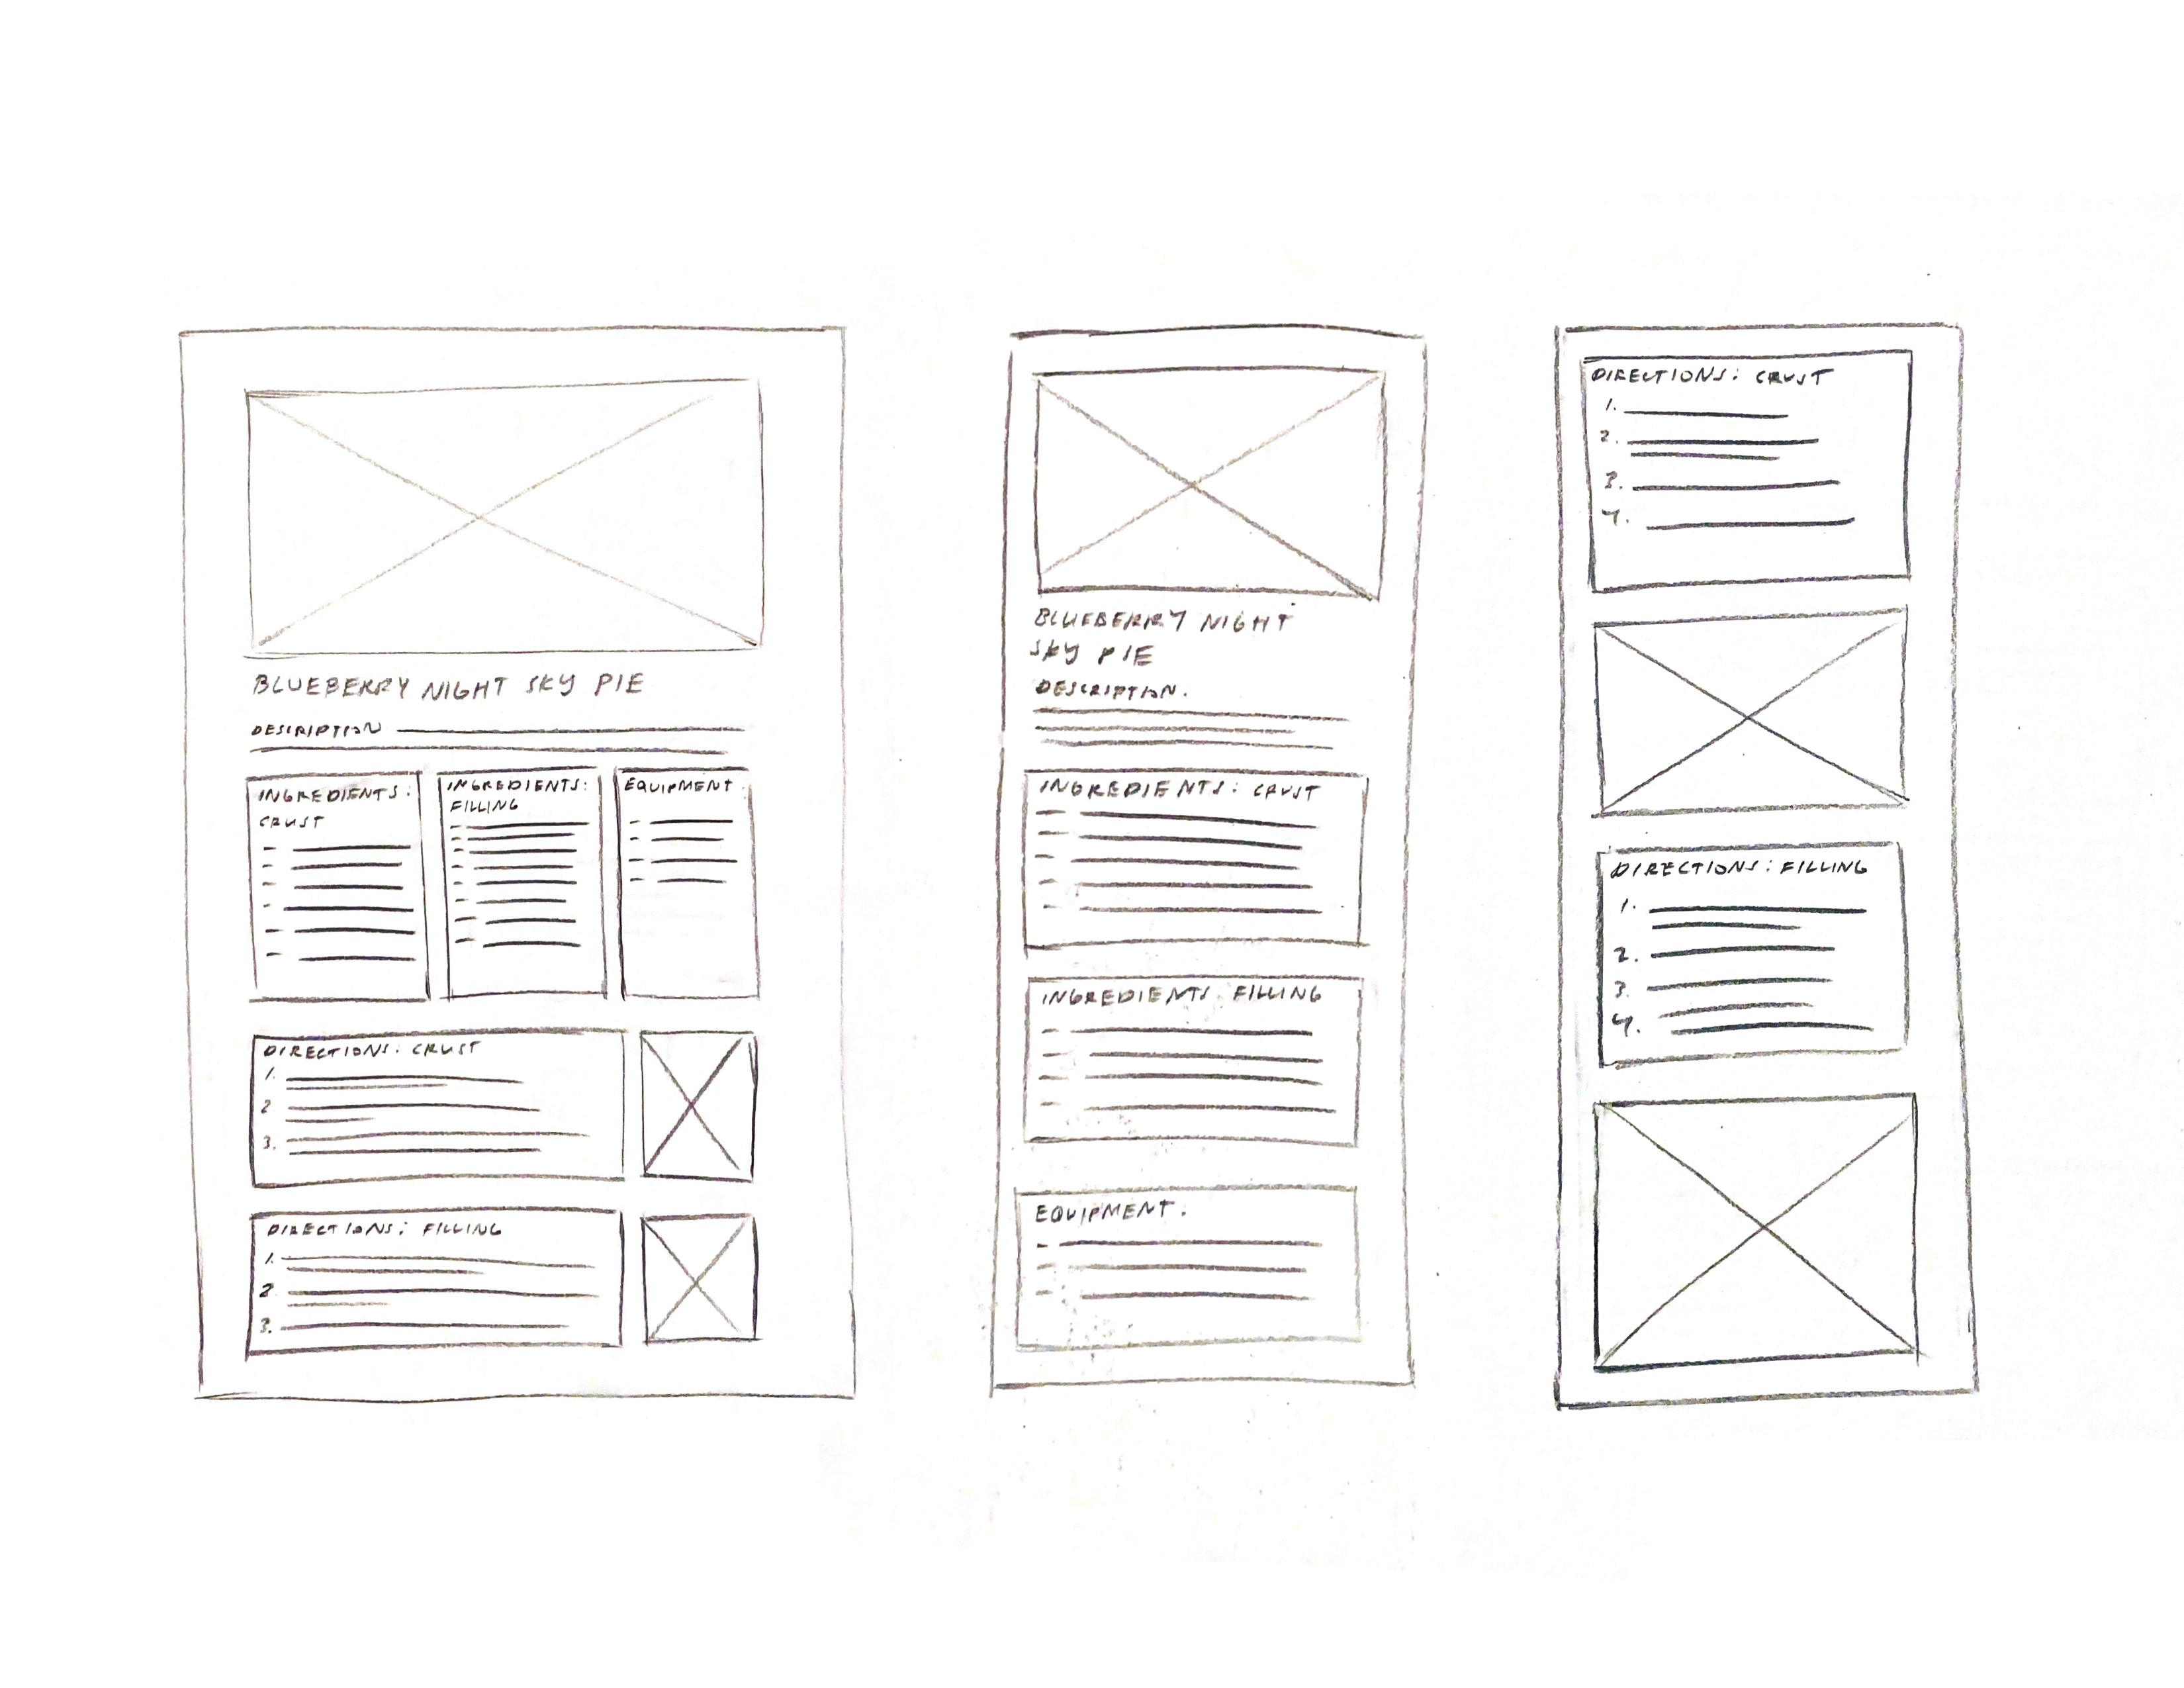 BLUEBERRY NIGHT SKY PIE
DESCRIPTION
INGREDIENTS:
CRUST
INGREDIENTS:
FILLING
EQUIPMENT:
DIRECTIONS: CRUST
1.
2
3.
DIRECTIONS: FILLING
1.
2
3.
BLUEBERRY NIGHT
SKY PIE
DESCRIPTION.
INGREDIENTS: CRUST
INGREDIENTS: FILLING
EQUIPMENT:
DIRECTIONS: CRUST
1.
2.
3.
4.
DIRECTIONS: FILLING
1.
2.
3.
4.